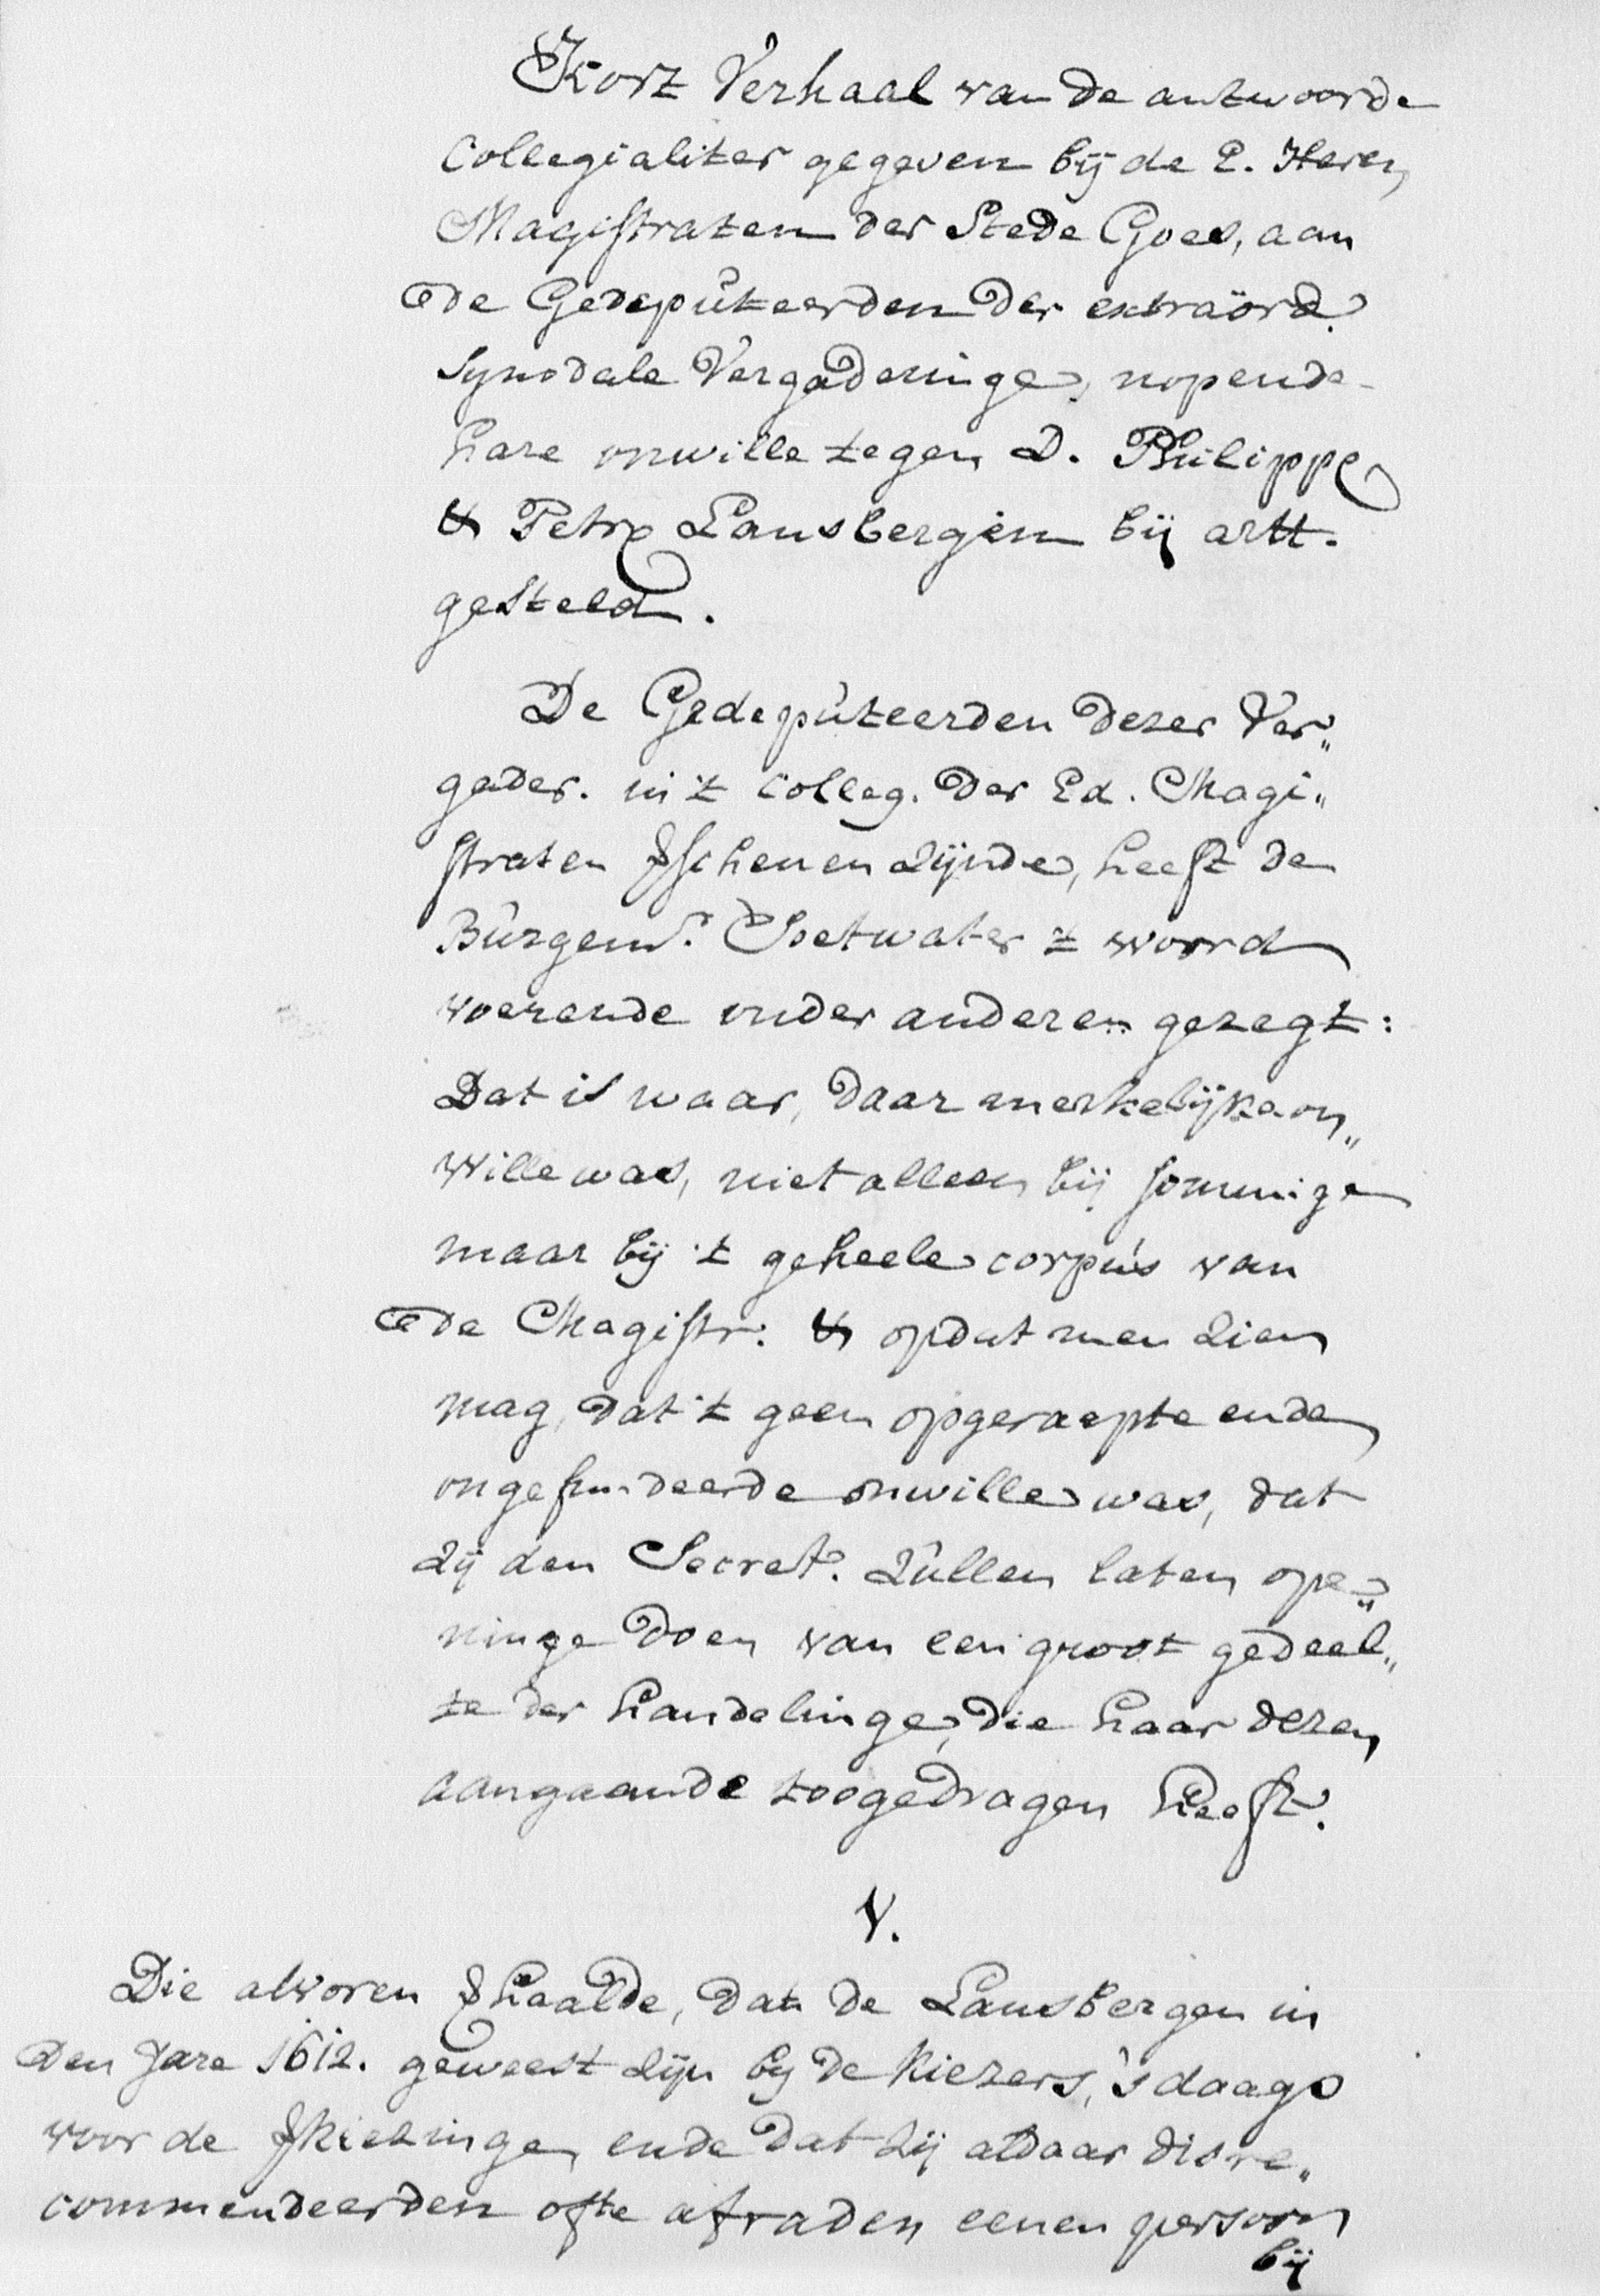 Kort Verhaal van de antwoorde
Collegialiter gegeven bij de E. Heren
Magistraten der Stede Goes, aan
de Gedeputeerden der extraörd.
Synodale Vergaderinge, nopende
hare onwille tegen D. Philippe
& Petro Lansbergen bij artt.
gesteld.
De Gedeputeerden dezer Ver„
gader. in 't Colleg. der Ed. Magi„
straten schenen zijnde, heeft de
Burgem.r Soetwater 't woord
voerende onder anderen gezegt:
Dat is waar, daar merkelijke on„
wille was, niet alleen bij sommige
maar bij 't geheele corpus van
de Magistr: & opdat men zien
mag, dat 't geen opgeraepte ende
ongefundeerde onwille was, dat
zij den Secret. zullen laten ope„
ninge doen van een groot gedeel„
te der handelinge, die haar dezen
aangaande toegedragen heeft.
V.
Die alvoren haalde, dat de Lansbergen in
den Jare 1612. geweest zijn bij de Kiezers, 's daags
voor de kiezinge, ende dat zij aldaar disre„
commendeerden ofte afraden eenen persoon
bij